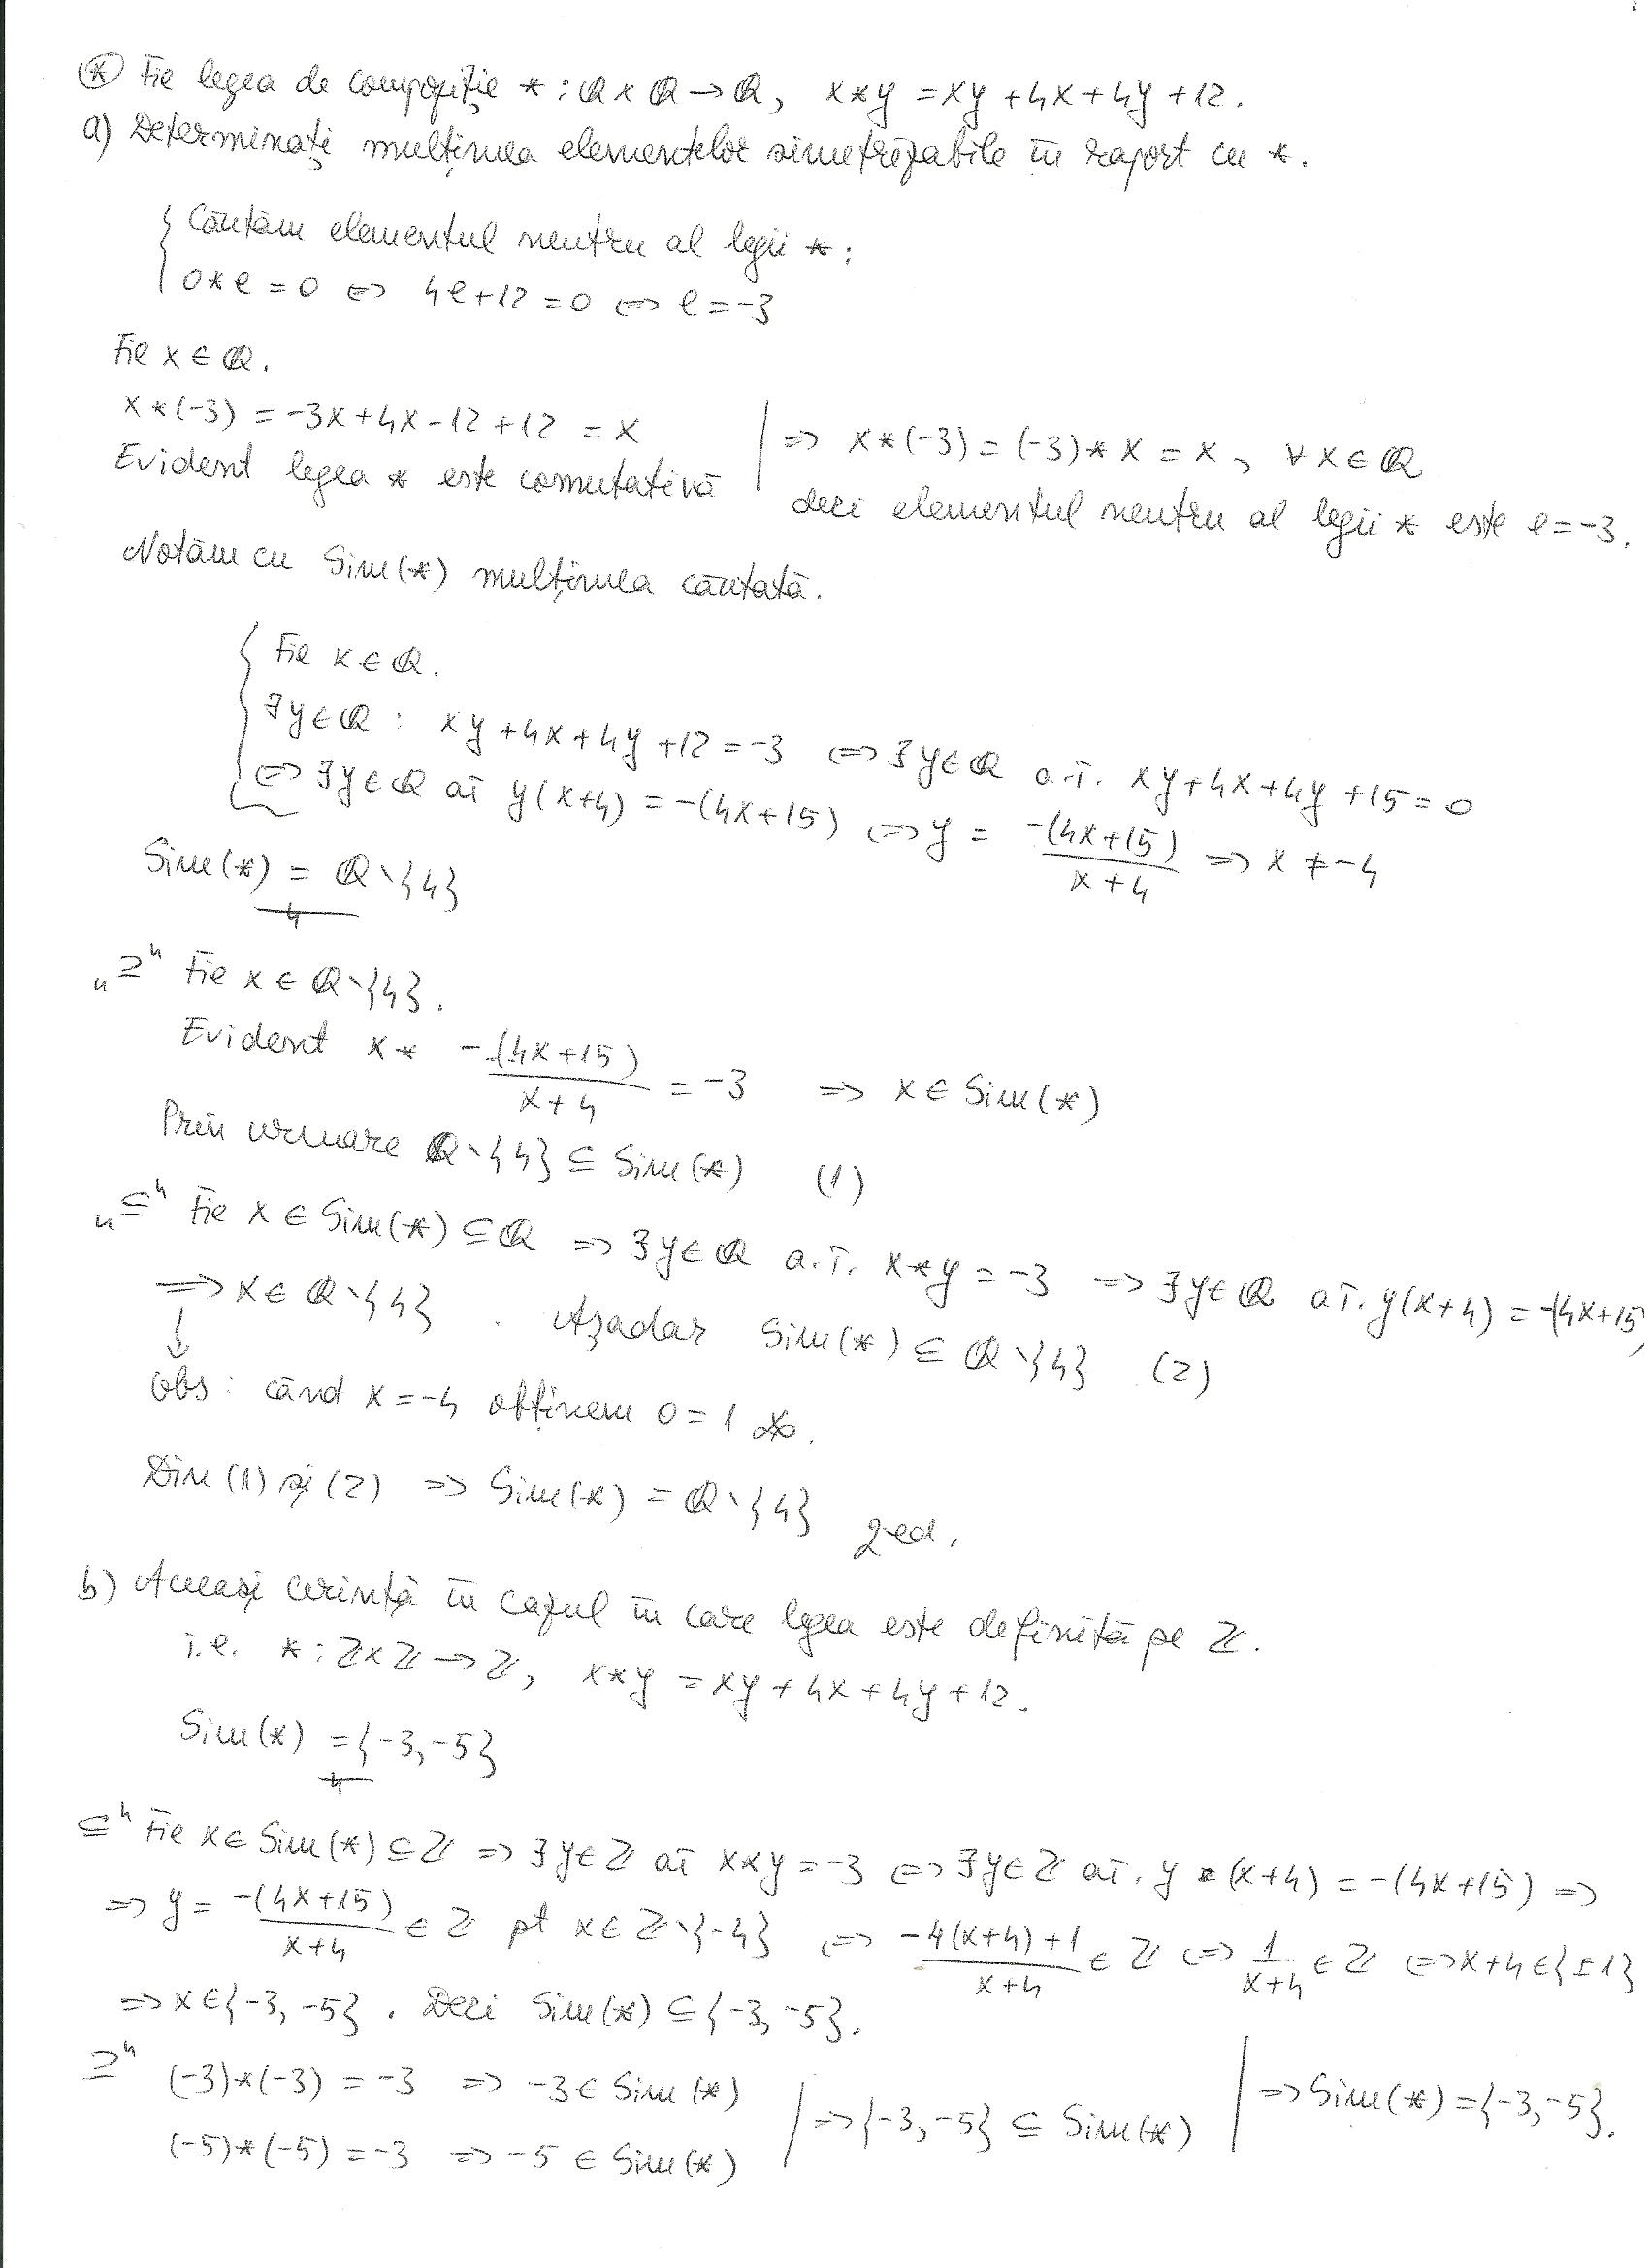 (*) Fie legea de compoziție * : ℚ × ℚ → ℚ, x*y = xy + 4x + 4y + 12.
a) Determinați mulțimea elementelor simetrizabile în raport cu *.
Căutăm elementul neutru al legii * :
0*e = 0 ⇔ 4e+12 = 0 ⇔ e = -3
Fie x ∈ ℚ.
x*(-3) = -3x+4x-12+12 = x
Evident legea * este comutativă
⇒ x*(-3) = (-3)*x = x, ∀x ∈ ℚ
deci elementul neutru al legii * este e = -3.
Notăm cu Sim(*) mulțimea căutată.
Fie x ∈ ℚ.
∃y∈ℚ : xy+4x+4y+12 = -3 ⇔ ∃y∈ℚ a.î. xy+4x+4y+15 = 0
⇔ ∃y∈ℚ aî y(x+4) = -(4x+15) ⇔ y = -(4x+15)/(x+4) ⇒ x ≠ -4
Sim(*) = ℚ∖{4}
„⊇" Fie x ∈ ℚ∖{4}.
Evident x * -(4x+15)/(x+4) = -3 ⇒ x ∈ Sim(*)
Prin urmare ℚ∖{4} ⊆ Sim(*) (1)
„⊆" Fie x ∈ Sim(*) ⊆ ℚ ⇒ ∃y∈ℚ a.î. x*y = -3 ⇒ ∃y∈ℚ aî. y(x+4) = -(4x+15)
⇒ x ∈ ℚ∖{4}. Așadar Sim(*) ⊆ ℚ∖{4} (2)
Obs : când x = -4 obținem 0 = 1 ※.
Din (1) și (2) ⇒ Sim(*) = ℚ∖{4} qed.
b) Aceeași cerință în cazul în care legea este definită pe ℤ.
i.e. * : ℤ×ℤ → ℤ, x*y = xy + 4x + 4y + 12.
Sim(*) = {-3, -5}
⊆" Fie x ∈ Sim(*) ⊆ ℤ ⇒ ∃y∈ℤ aî x*y = -3 ⇔ ∃y∈ℤ aî. y (x+4) = -(4x+15) ⇒
⇒ y = -(4x+15)/(x+4) ∈ ℤ pt x∈ℤ∖{-4} ⇔ (-4(x+4)+1)/(x+4) ∈ ℤ ⇔ 1/(x+4) ∈ ℤ ⇔ x+4 ∈ {±1}
⇒ x ∈ {-3, -5}. Deci Sim(*) ⊆ {-3, -5}.
⊇" (-3)*(-3) = -3 ⇒ -3 ∈ Sim(*)
(-5)*(-5) = -3 ⇒ -5 ∈ Sim(*)
⇒ {-3, -5} ⊆ Sim(*)
⇒ Sim(*) = {-3, -5}.